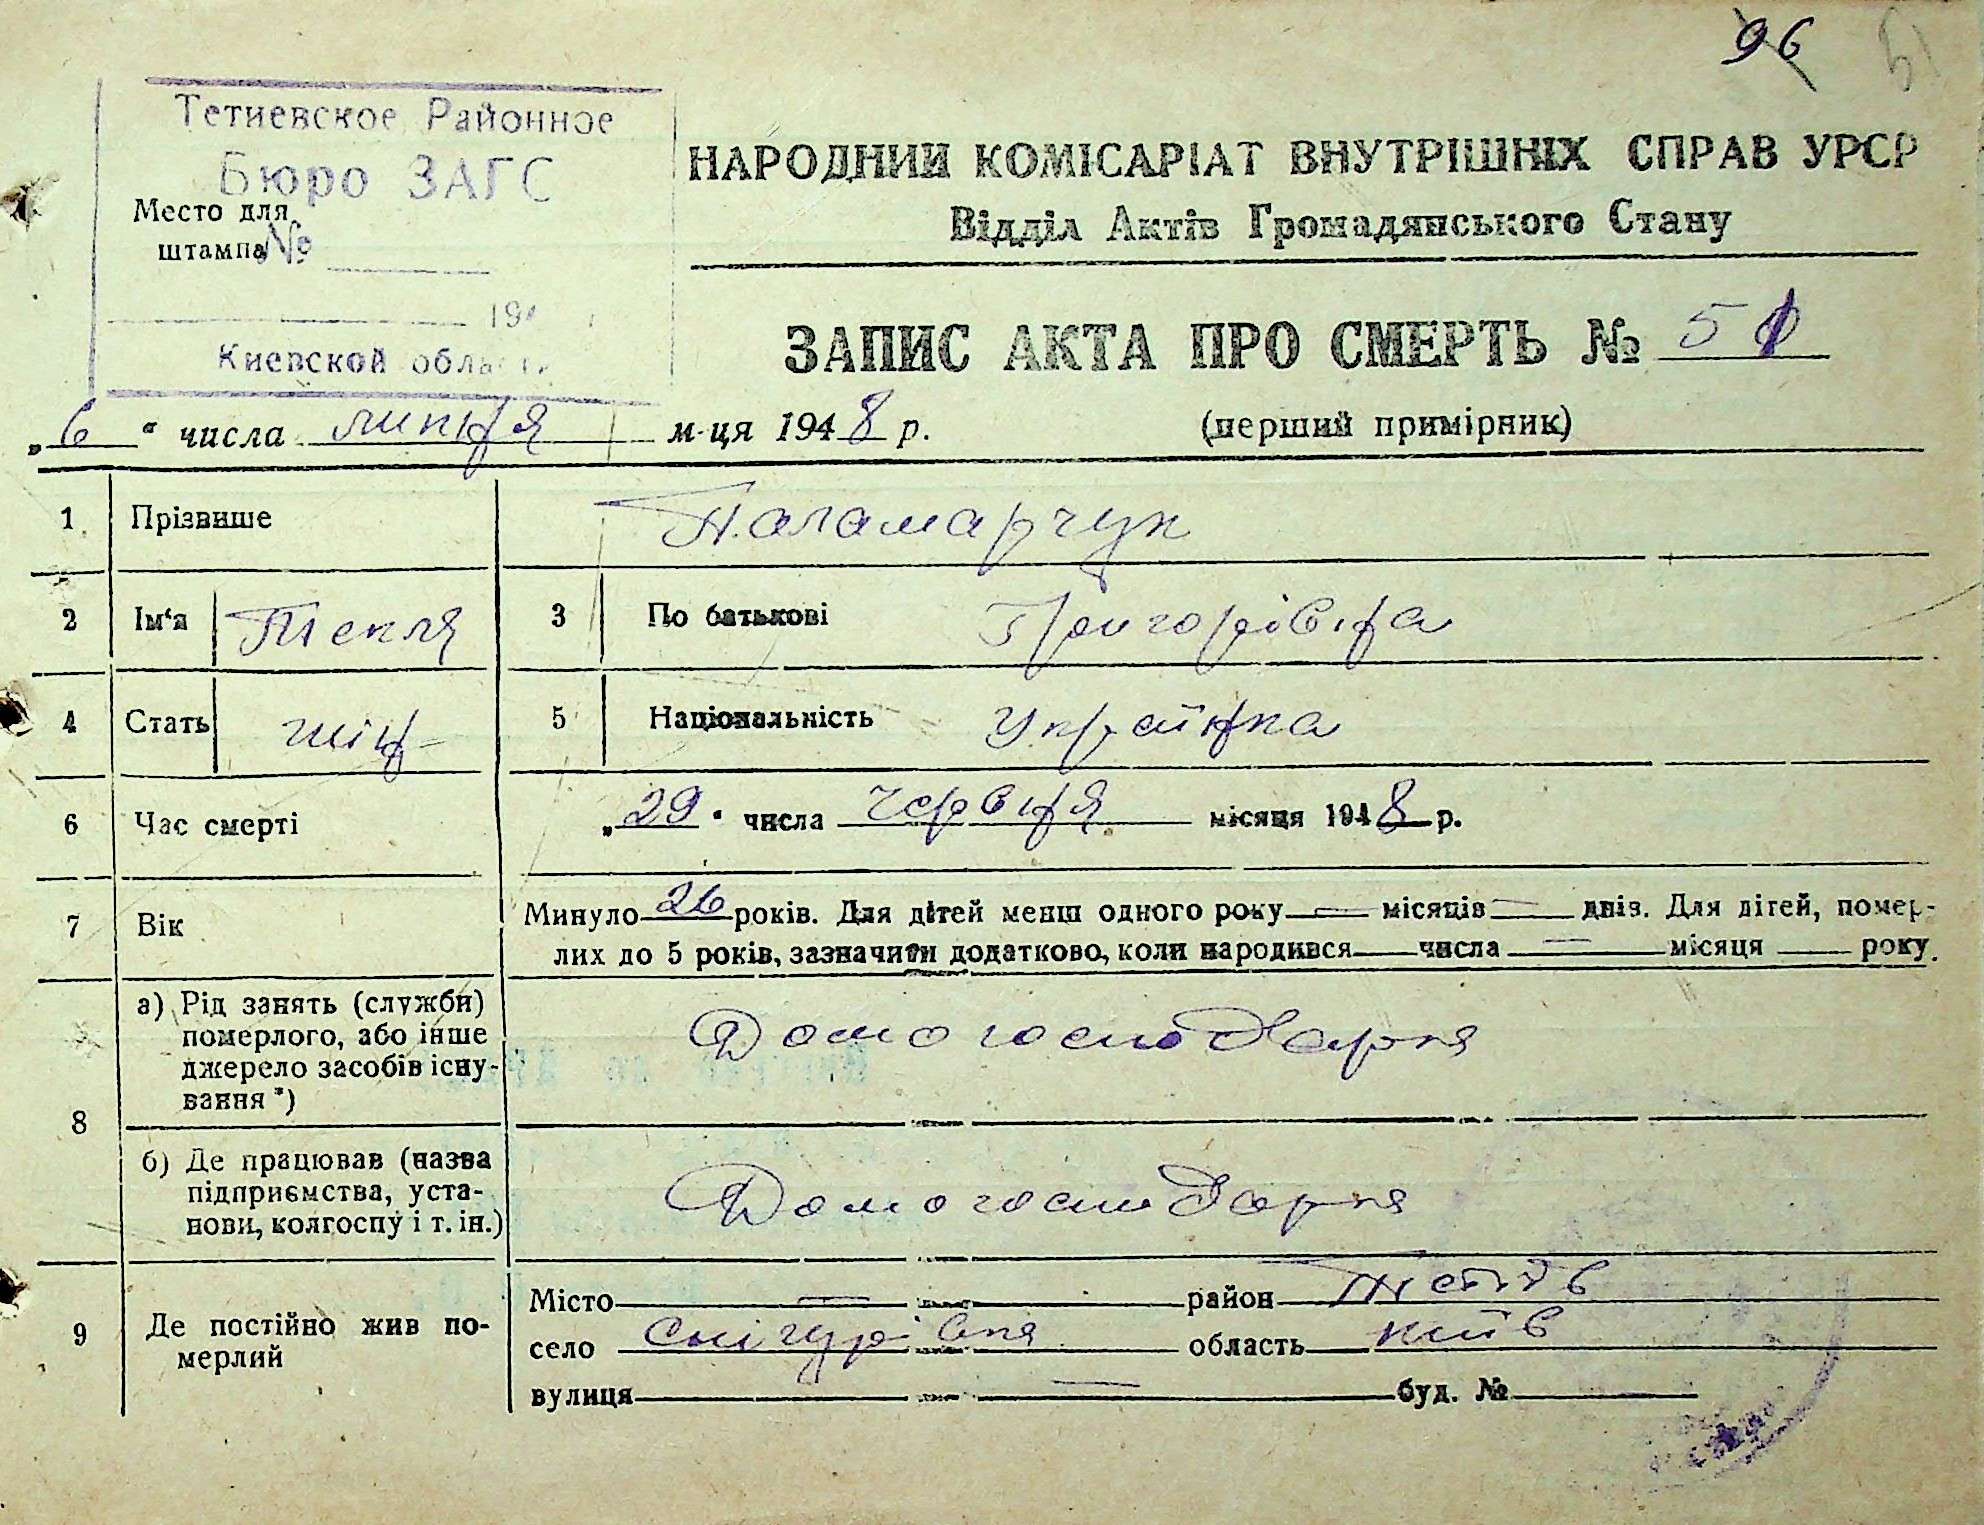 96 51
Тетиевское Районное
Бюро ЗАГС
Место для
штампа №
194
Киевской области
НАРОДНИЙ КОМІСАРІАТ ВНУТРІШНІХ СПРАВ УРСР
Відділ Актів Громадянського Стану
ЗАПИС АКТА ПРО СМЕРТЬ № 51
„6“ числа липня м-ця 1948 р. (перший примірник)
1 Прізвише Паламарчук
2 Ім‘я Текля 3 По батькові Григорівна
4 Стать жін 5 Національність Українка
6 Час смерті „29“ числа червня місяця 1948 р.
7 Вік Минуло 26 років. Для дітей менш одного року — місяців — днів. Для дітей, помер-
лих до 5 років, зазначити додатково, коли народився — числа — місяця — року.
8 а) Рід занять (служби)
померлого, або інше
джерело засобів існу-
вання *)
Домогосподарка
б) Де працював (назва
підприємства, уста-
нови, колгоспу і т. ін.)
Домогосподарка
9 Де постійно жив по-
мерлий
Місто — район Тетіїв
село Снігурівка область Київ
вулиця — буд. №